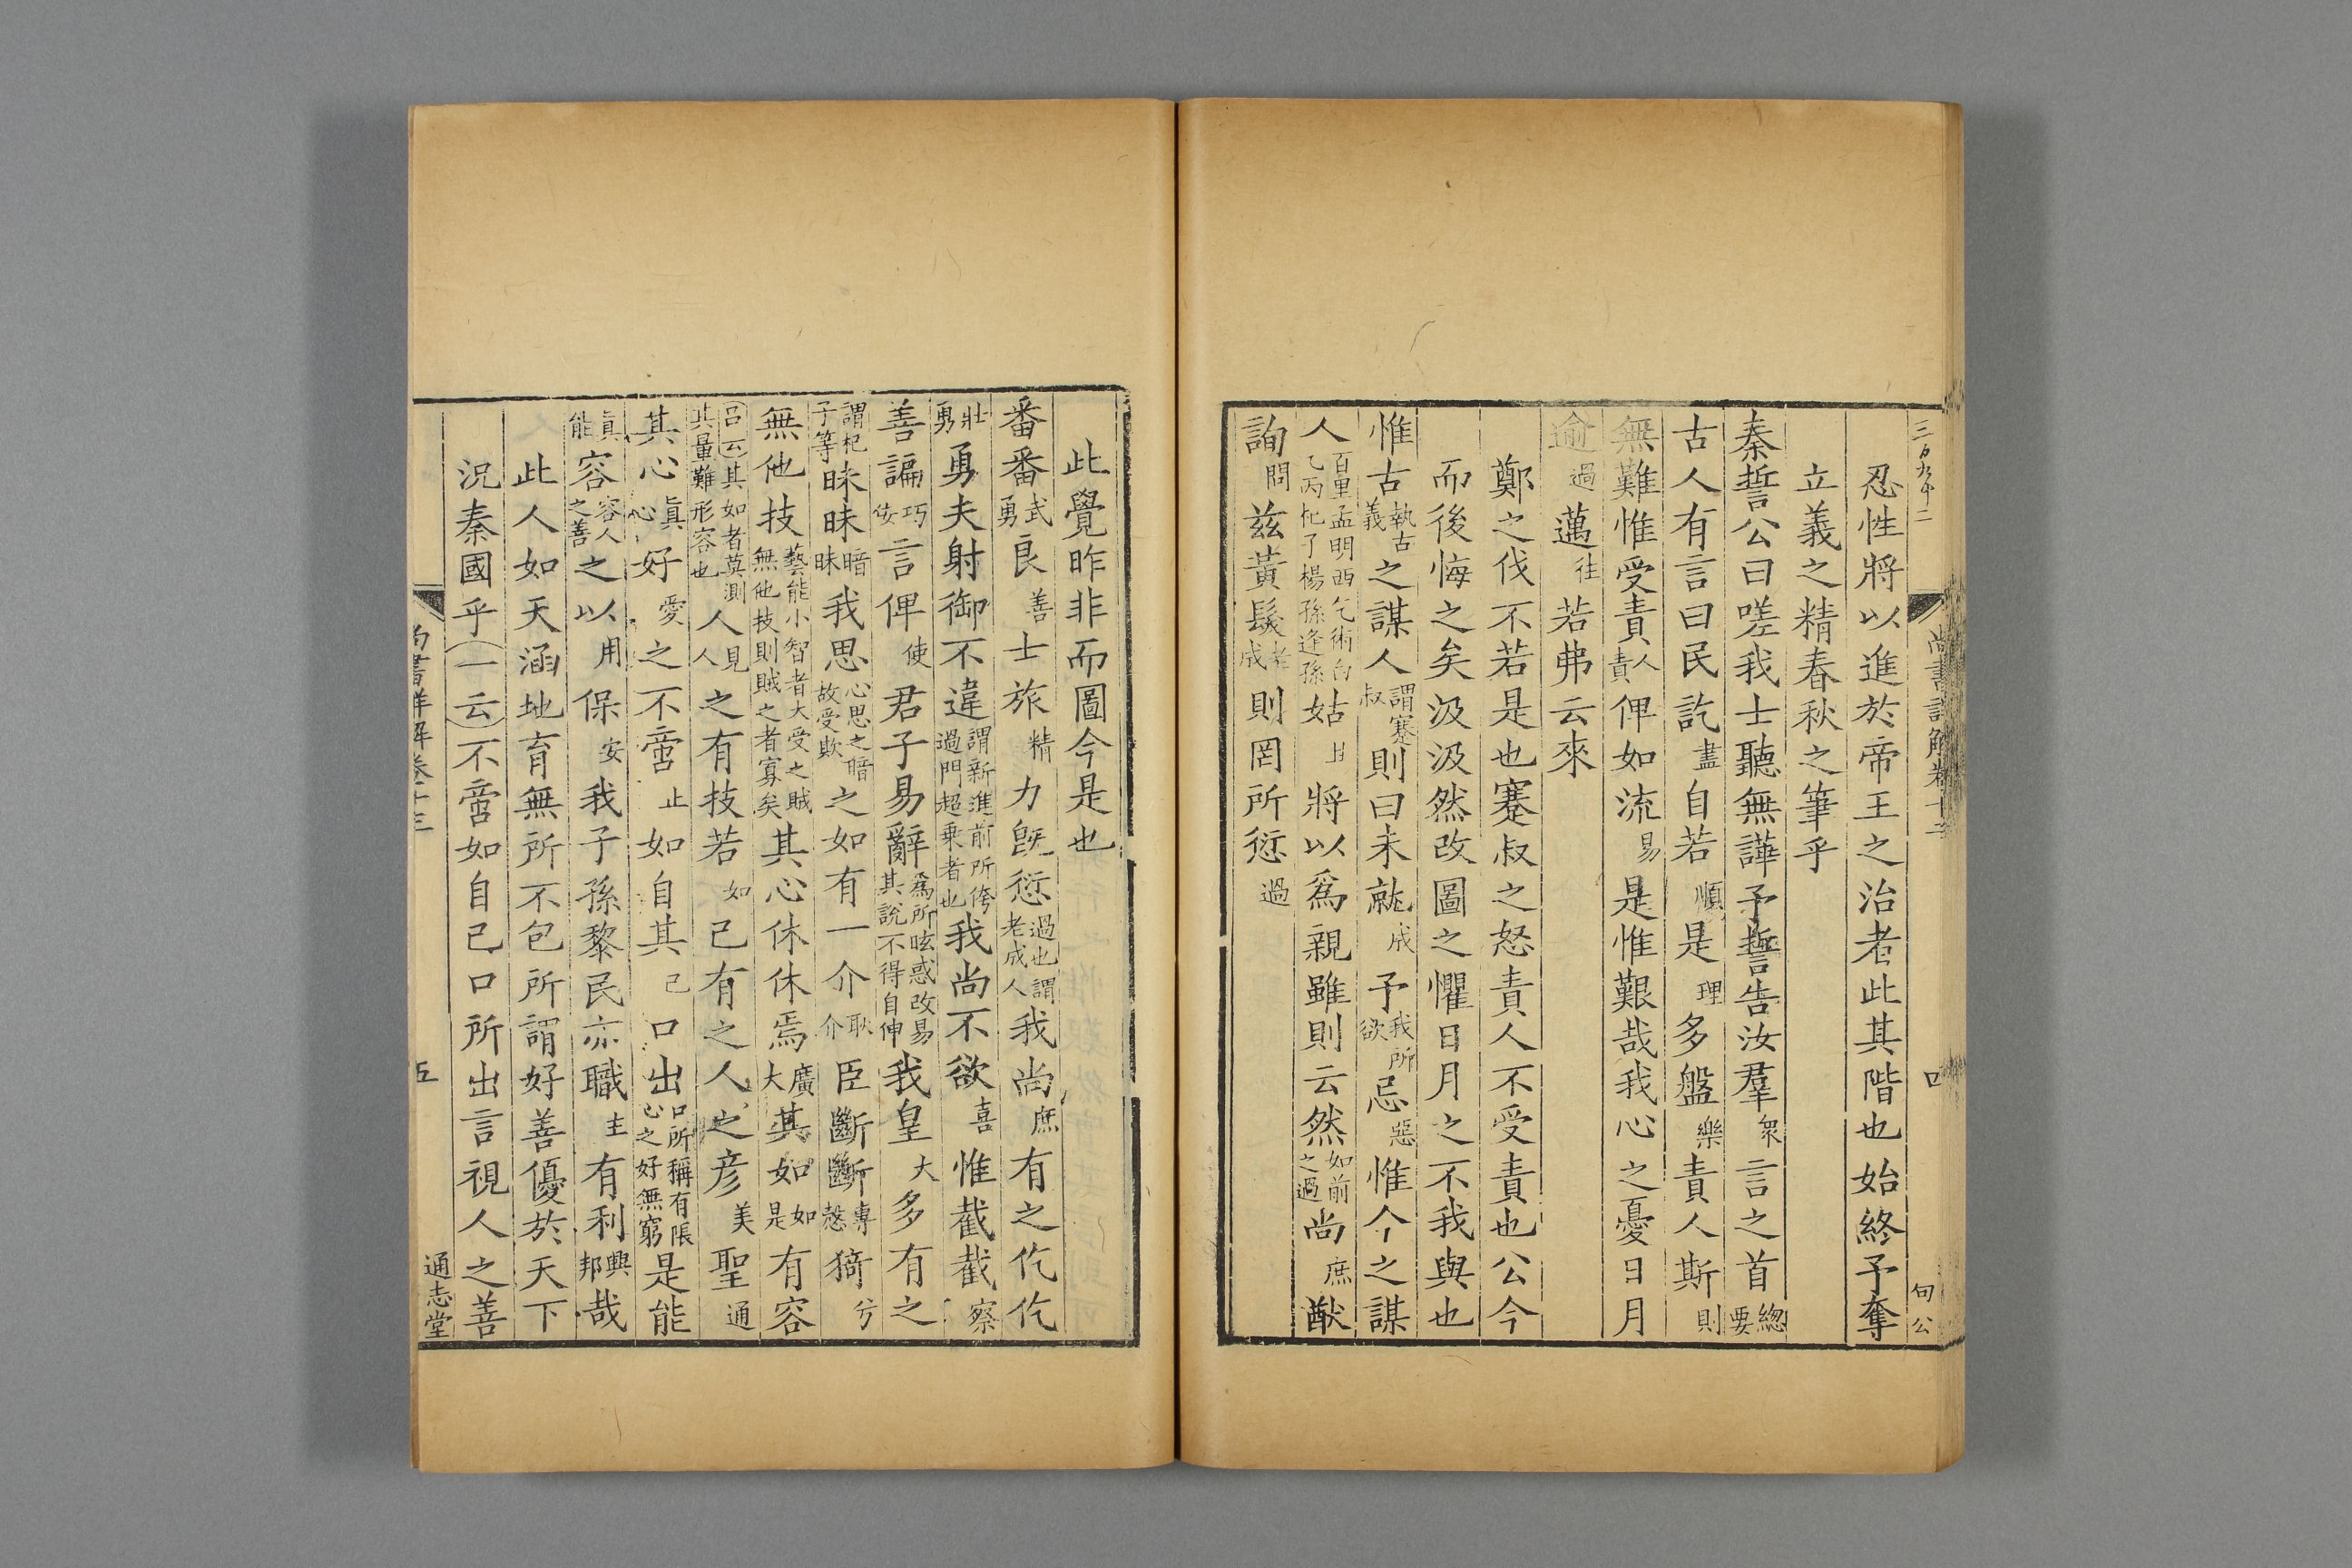 三百九十二
尚書詳解卷十三
四
甸公
忍性將以進於帝王之治者此其階也始終予奪
立義之精春秋之筆乎
秦誓公曰嗟我士聽無譁予誓告汝羣衆言之首總要
古人有言曰民訖盡自若順是理多盤樂責人斯則
無難惟受責人責俾如流易是惟艱哉我心之憂日月
逾過邁往若弗云來
鄭之伐不若是也蹇叔之怒責人不受責也公今
而後悔之矣汲汲然改圖之懼日月之不我與也
惟古執古義之謀人謂蹇叔則曰未就成予我所欲忌惡惟今之謀
人百里孟明西乞術白乙丙杞子楊孫逢孫姑且將以爲親雖則云然如前之過尚庶猷
詢問茲黃髮老成則罔所愆過
此覺昨非而圖今是也
番番武勇良善士旅精力旣愆過也謂老成人我尚庶有之仡仡
壯勇勇夫射御不違謂新進前所侉過門超乗者也我尚不欲喜惟截截察
善諞巧佞言俾使君子易辭爲所眩惑改易其說不得自伸我皇大多有之
謂杞子等昧昧暗昧我思心思之暗故受欺之如有一介耿介臣斷斷專慤猗兮
無他技藝能小智者大受之賊無他技則賊之者寡矣其心休休焉廣大其如如是有容
呂云其如者莫測其量難形容也人見人之有技若如己有之人之彦美聖通
其心眞心好愛之不啻止如自其己口出口所稱有限心之好無窮是能
眞能容容人之善之以用保安我子孫黎民亦職主有利興邦哉
此人如天涵地育無所不包所謂好善優於天下
況秦國乎一云不啻如自己口所出言視人之善
尚書詳解卷十三
五
通志堂